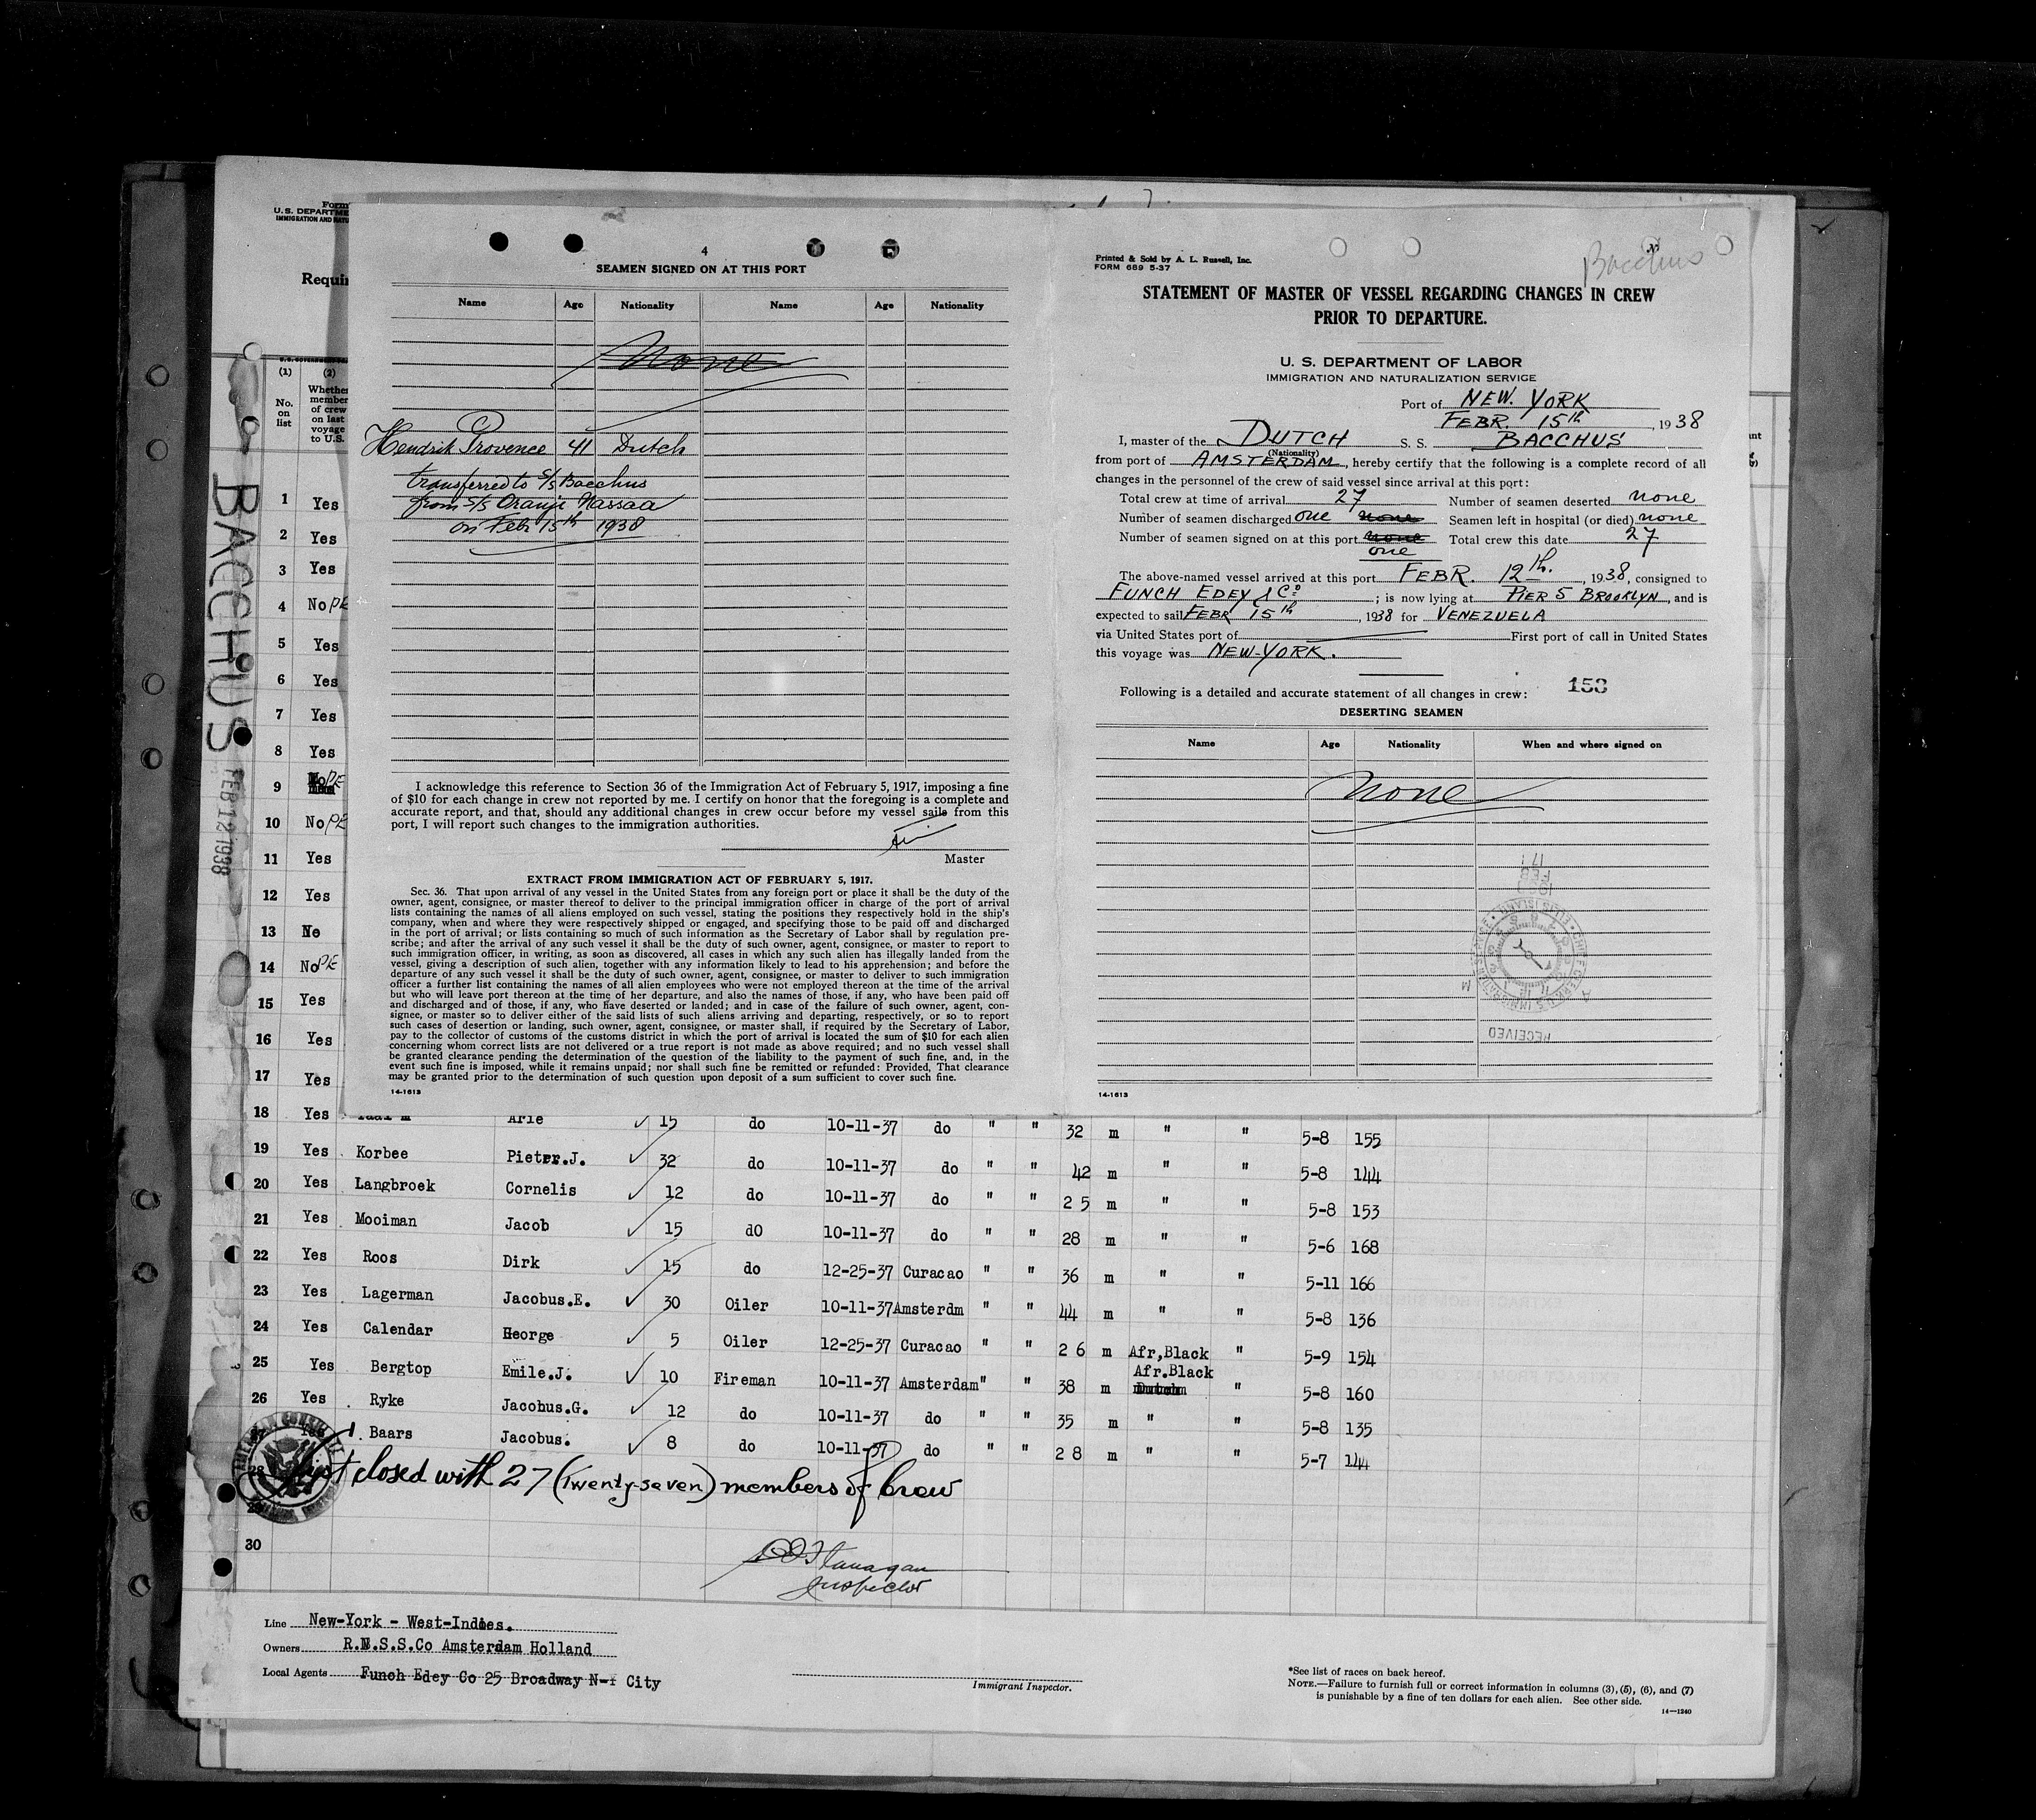 Form
U. S. DEPARTME
IMMIGRATION AND NATU
Requir
(1) (2)
No. on list
Whether member of crew on last voyage to U.S.
BACCHUS
FEB 12 1938
1 Yes
2 Yes
3 Yes
4 No PE
5 Yes
6 Yes
7 Yes
8 Yes
9 No PE
10 No PE
11 Yes
12 Yes
13 No
14 No PE
15 Yes
16 Yes
17 Yes
4
SEAMEN SIGNED ON AT THIS PORT
Name Age Nationality Name Age Nationality
None
Hendrik Provence 41 Dutch
transferred to S/S Bacchus
from S/S Oranje Nassaa
on Feb 15th 1938
I acknowledge this reference to Section 36 of the Immigration Act of February 5, 1917, imposing a fine
of $10 for each change in crew not reported by me. I certify on honor that the foregoing is a complete and
accurate report, and that, should any additional changes in crew occur before my vessel sails from this
port, I will report such changes to the immigration authorities.
Master
EXTRACT FROM IMMIGRATION ACT OF FEBRUARY 5, 1917.
Sec. 36. That upon arrival of any vessel in the United States from any foreign port or place it shall be the duty of the
owner, agent, consignee, or master thereof to deliver to the principal immigration officer in charge of the port of arrival
lists containing the names of all aliens employed on such vessel, stating the positions they respectively hold in the ship's
company, when and where they were respectively shipped or engaged, and specifying those to be paid off and discharged
in the port of arrival; or lists containing so much of such information as the Secretary of Labor shall by regulation pre-
scribe; and after the arrival of any such vessel it shall be the duty of such owner, agent, consignee, or master to report to
such immigration officer, in writing, as soon as discovered, all cases in which any such alien has illegally landed from the
vessel, giving a description of such alien, together with any information likely to lead to his apprehension; and before the
departure of any such vessel it shall be the duty of such owner, agent, consignee, or master to deliver to such immigration
officer a further list containing the names of all alien employees who were not employed thereon at the time of the arrival
but who will leave port thereon at the time of her departure, and also the names of those, if any, who have been paid off
and discharged and of those, if any, who have deserted or landed; and in case of the failure of such owner, agent, con-
signee, or master so to deliver either of the said lists of such aliens arriving and departing, respectively, or so to report
such cases of desertion or landing, such owner, agent, consignee, or master shall, if required by the Secretary of Labor,
pay to the collector of customs of the customs district in which the port of arrival is located the sum of $10 for each alien
concerning whom correct lists are not delivered or a true report is not made as above required; and no such vessel shall
be granted clearance pending the determination of the question of the liability to the payment of such fine, and, in the
event such fine is imposed, while it remains unpaid; nor shall such fine be remitted or refunded: Provided, That clearance
may be granted prior to the determination of such question upon deposit of a sum sufficient to cover such fine.
14-1613
Bacchus
Printed & Sold by A. L. Russell, Inc.
FORM 689 5-37
STATEMENT OF MASTER OF VESSEL REGARDING CHANGES IN CREW
PRIOR TO DEPARTURE.
U. S. DEPARTMENT OF LABOR
IMMIGRATION AND NATURALIZATION SERVICE
Port of NEW. YORK
FEBR. 15th, 1938
I, master of the DUTCH S. S. BACCHUS
(Nationality)
from port of AMSTERDAM, hereby certify that the following is a complete record of all
changes in the personnel of the crew of said vessel since arrival at this port:
Total crew at time of arrival 27 Number of seamen deserted none
Number of seamen discharged one none Seamen left in hospital (or died) none
Number of seamen signed on at this port none Total crew this date 27
one
The above-named vessel arrived at this port FEBR. 12th., 1938, consigned to
FUNCH EDEY & Co; is now lying at PIER 5 BROOKLYN, and is
expected to sail FEBR 15th, 1938 for VENEZUELA
via United States port of First port of call in United States
this voyage was NEW-YORK.
Following is a detailed and accurate statement of all changes in crew: 153
DESERTING SEAMEN
Name Age Nationality When and where signed on
none
RECEIVED
14-1613
18 Yes Arie 15 do 10-11-37 do " " 32 m " " 5-8 155
19 Yes Korbee Pieter.J. 32 do 10-11-37 do " " 42 m " " 5-8 144
20 Yes Langbroek Cornelis 12 do 10-11-37 do " " 25 m " " 5-8 153
21 Yes Mooiman Jacob 15 dO 10-11-37 do " " 28 m " " 5-6 168
22 Yes Roos Dirk 15 do 12-25-37 Curacao " " 36 m " " 5-11 166
23 Yes Lagerman Jacobus.E. 30 Oiler 10-11-37 Amsterdm " " 44 m " " 5-8 136
24 Yes Calendar Heorge 5 Oiler 12-25-37 Curacao " " 26 m Afr,Black " 5-9 154
25 Yes Bergtop Emile.J. 10 Fireman 10-11-37 Amsterdam " " 38 m Afr.Black " 5-8 160
26 Yes Ryke Jacobus.G. 12 do 10-11-37 do " " 35 m " " 5-8 135
Baars Jacobus. 8 do 10-11-37 do " " 28 m " " 5-7 144
List closed with 27 (Twenty-seven) members of Crew
30
Flanagan
Inspector
Line New-York - West-Indies.
Owners R.N.S.S.Co Amsterdam Holland
Local Agents Funch Edey Co 25 Broadway N-Y City
Immigrant Inspector.
*See list of races on back hereof.
NOTE.—Failure to furnish full or correct information in columns (3), (5), (6), and (7)
is punishable by a fine of ten dollars for each alien. See other side.
14—1240